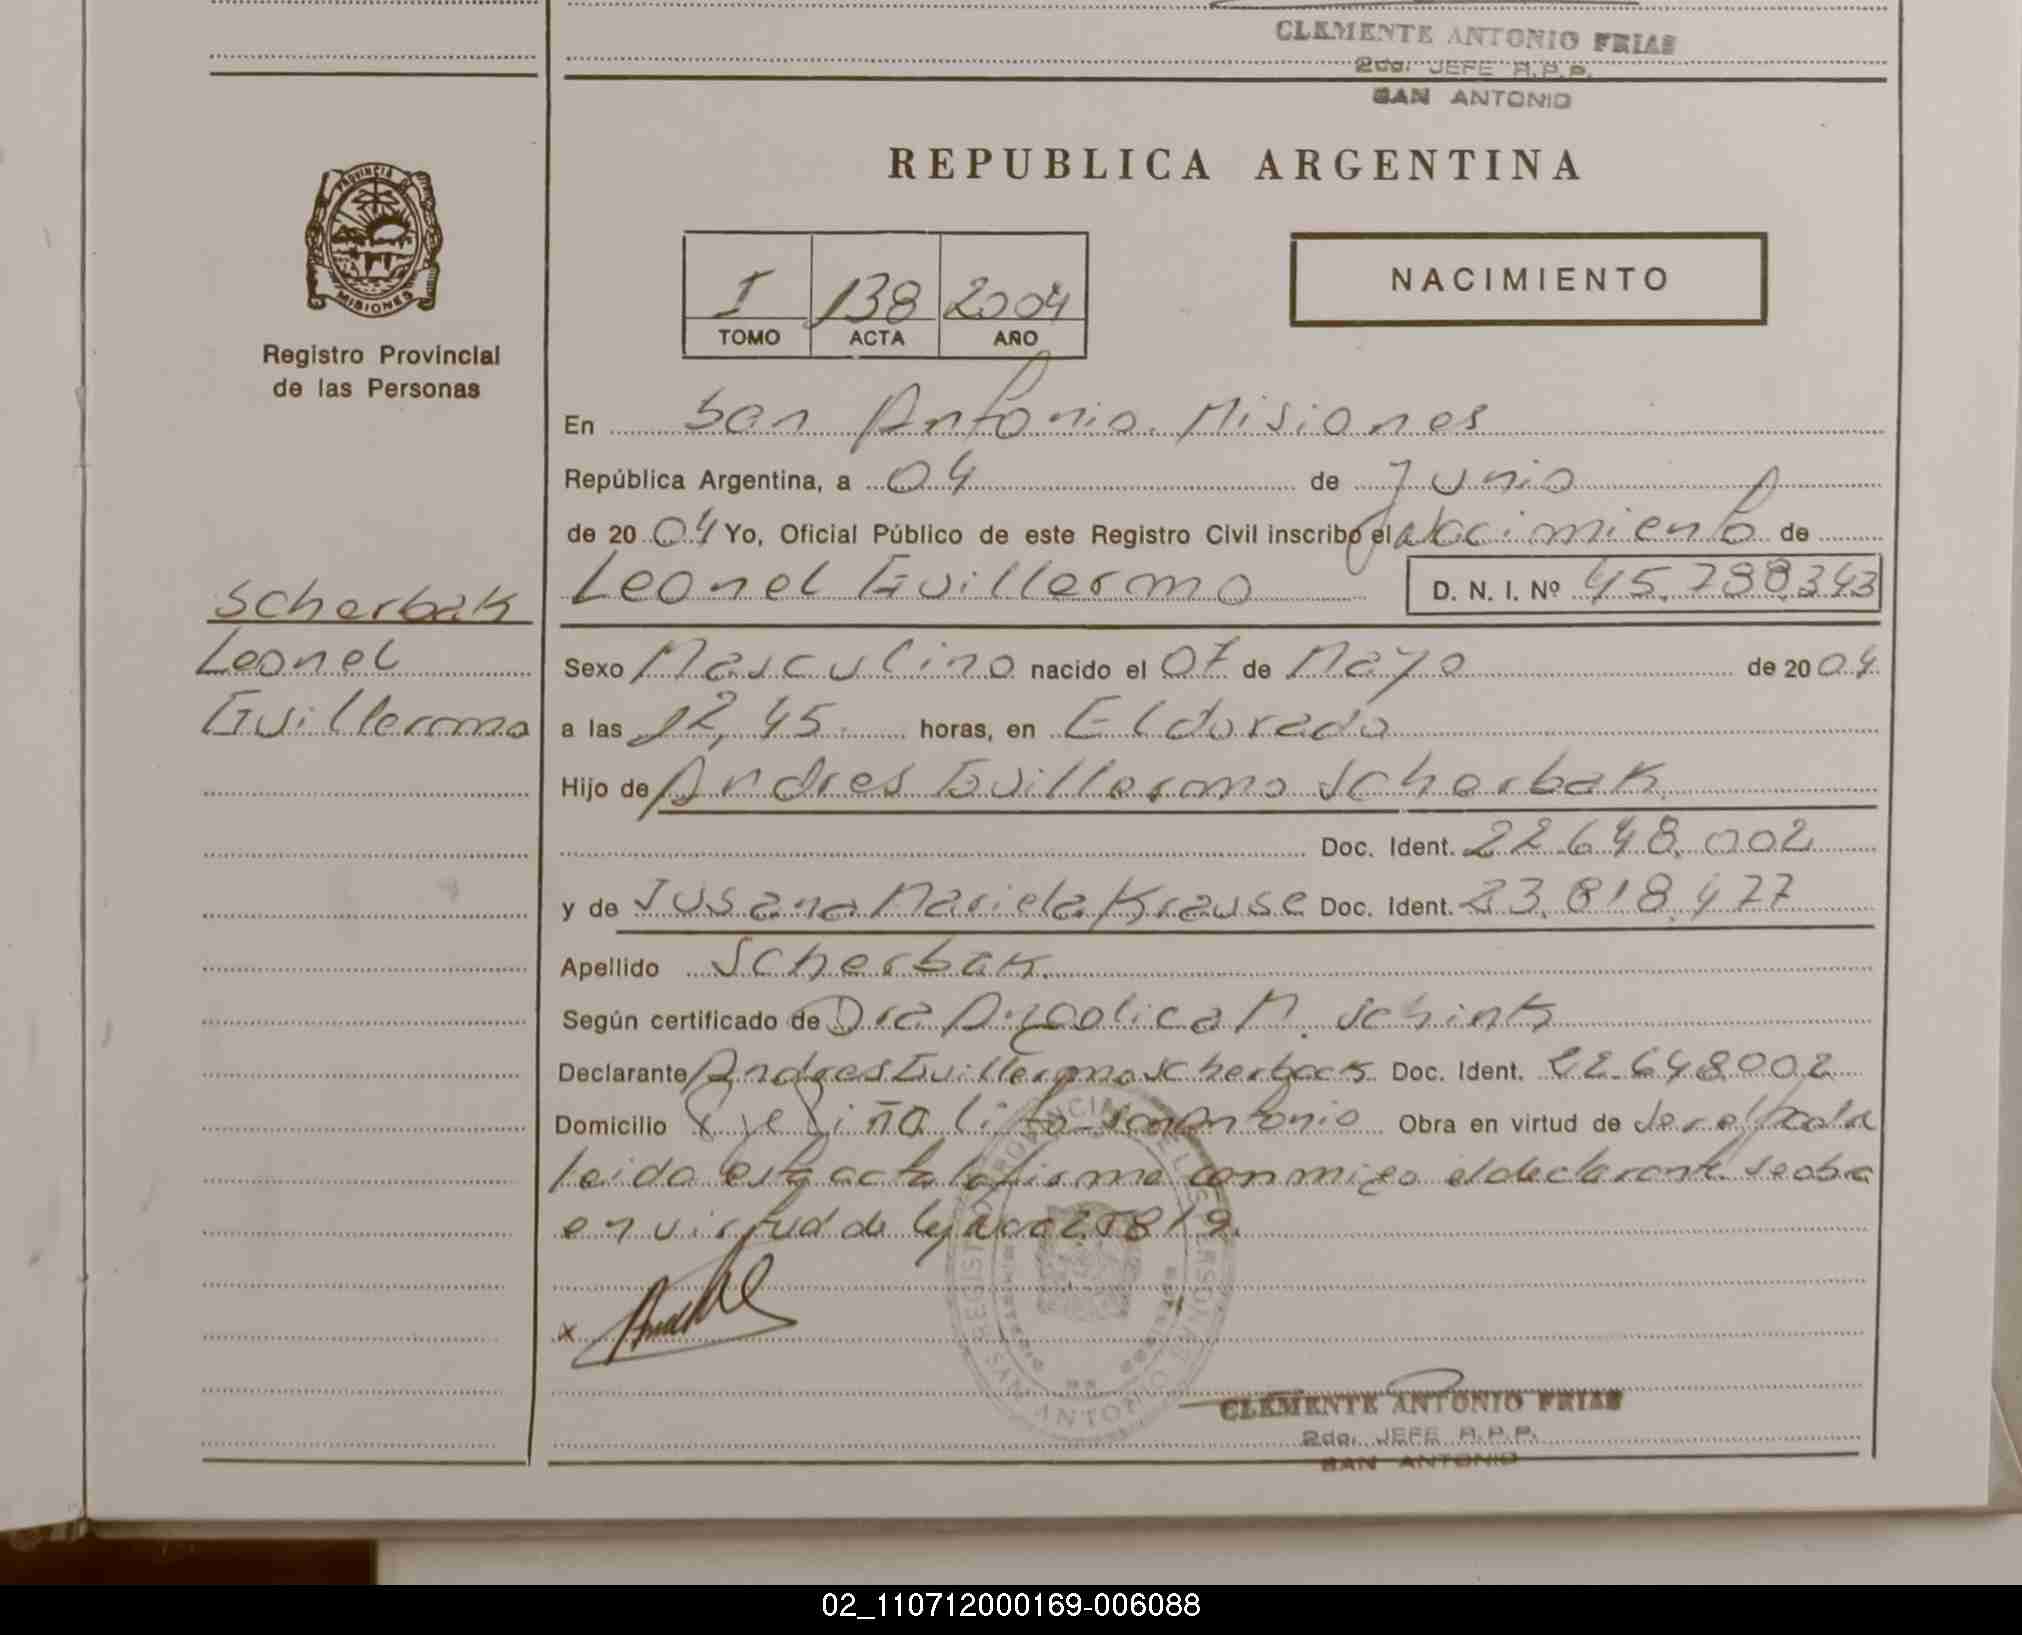 CLEMENTE ANTONIO FRIAS
2do. JEFE R.P.P.
SAN ANTONIO
PROVINCIA DE
MISIONES
Registro Provincial
de las Personas
REPUBLICA ARGENTINA
I 138 2004
TOMO ACTA AÑO
NACIMIENTO
En San Antonio. Misiones
República Argentina, a 04 de Junio
de 2004 Yo, Oficial Público de este Registro Civil inscribo el Nacimiento de
Leonel Guillermo D. N. I. Nº 45.788.343
Scherbak
Leonel
Guillermo
Sexo Masculino nacido el 07 de Mayo de 2004
a las 12,45 horas, en Eldorado
Hijo de Andres Guillermo Scherbak
Doc. Ident. 22.648.002
y de Susana Mariela Krause Doc. Ident. 23.818.477
Apellido Scherbak
Según certificado de Dra Angelica M. Schink
Declarante Andres Guillermo Scherbak Doc. Ident. 22.648002
Domicilio Pje Piñalito San Antonio Obra en virtud de Ser el padre
leida esta acta la firma conmigo el declarante. Se obra
en virtud de ley
x
REGISTRO PROVINCIAL DE LAS PERSONAS
SAN ANTONIO
CLEMENTE ANTONIO FRIAS
2do. JEFE R.P.P.
SAN ANTONIO
02_110712000169-006088